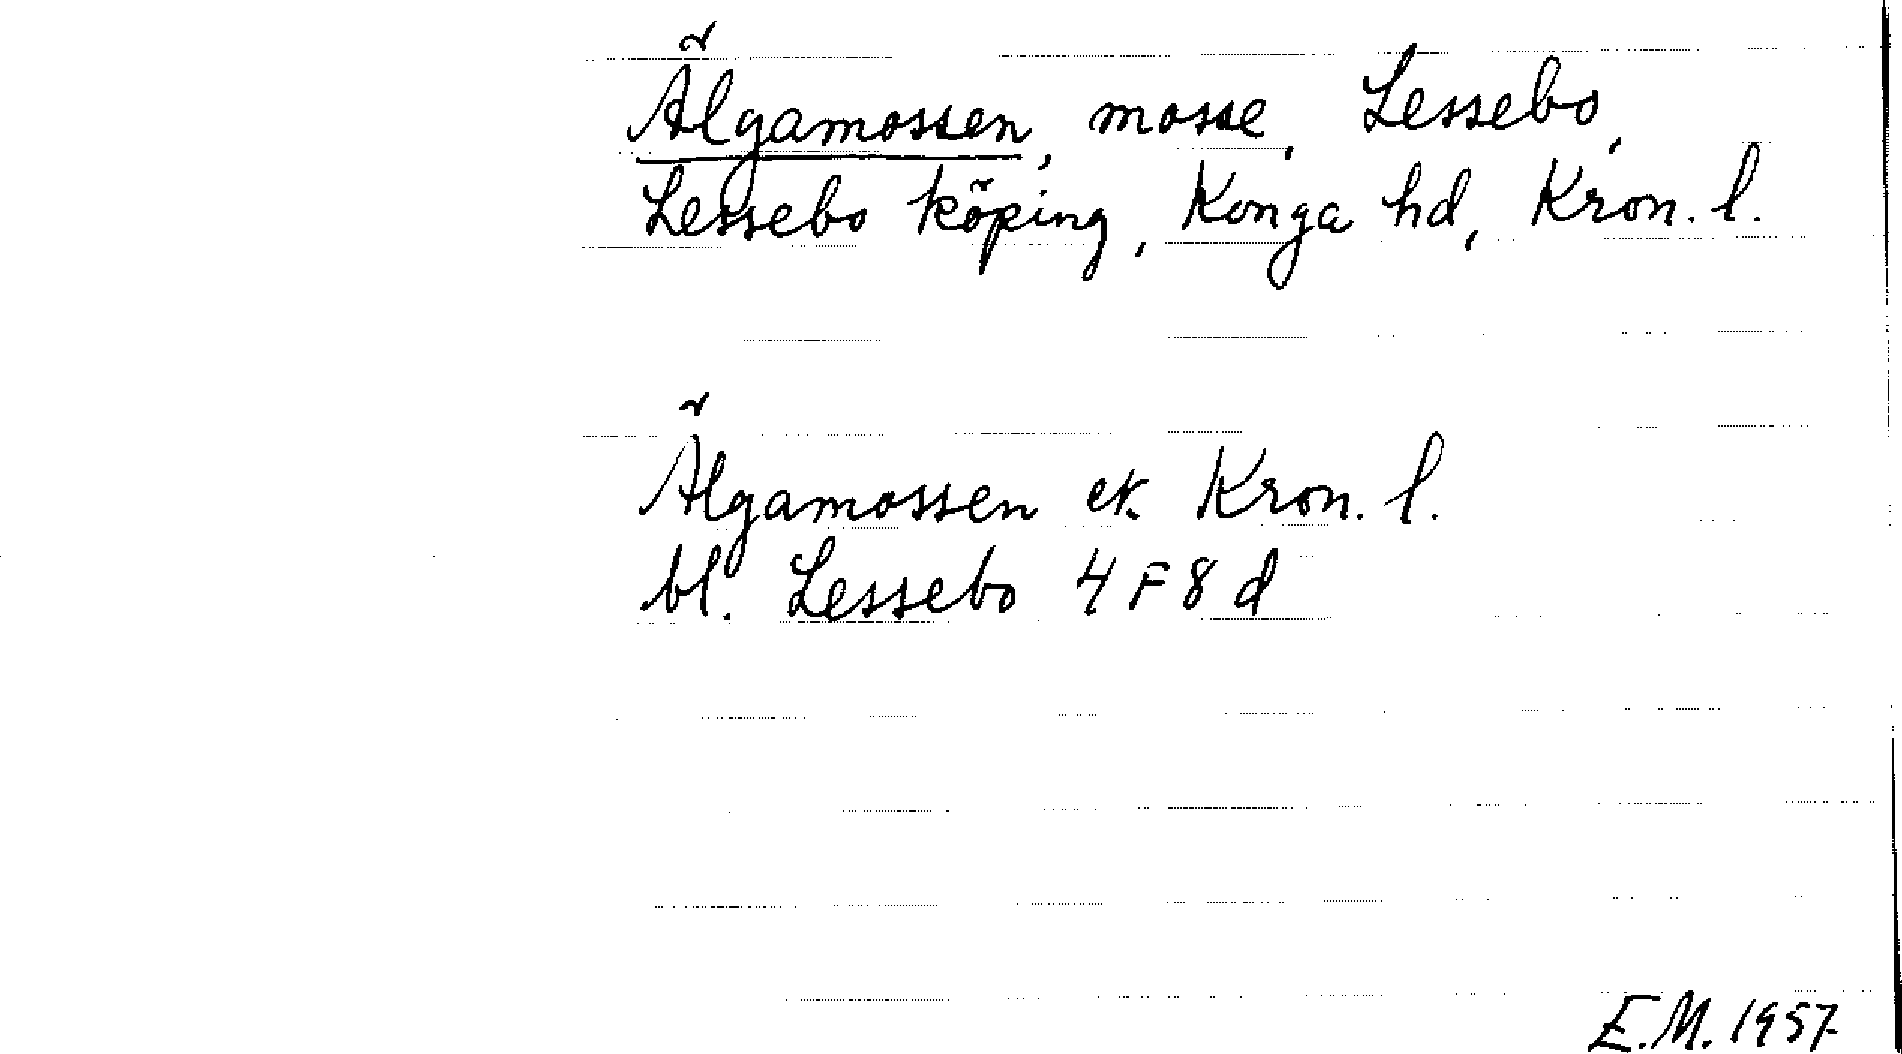 Älgamossen, mosse, Lessebo,
Lessebo köping, Konga hd, Kron. l.
Älgamossen ek. Kron. l.
bl. Lessebo 4 F 8 d
E.M. 1957